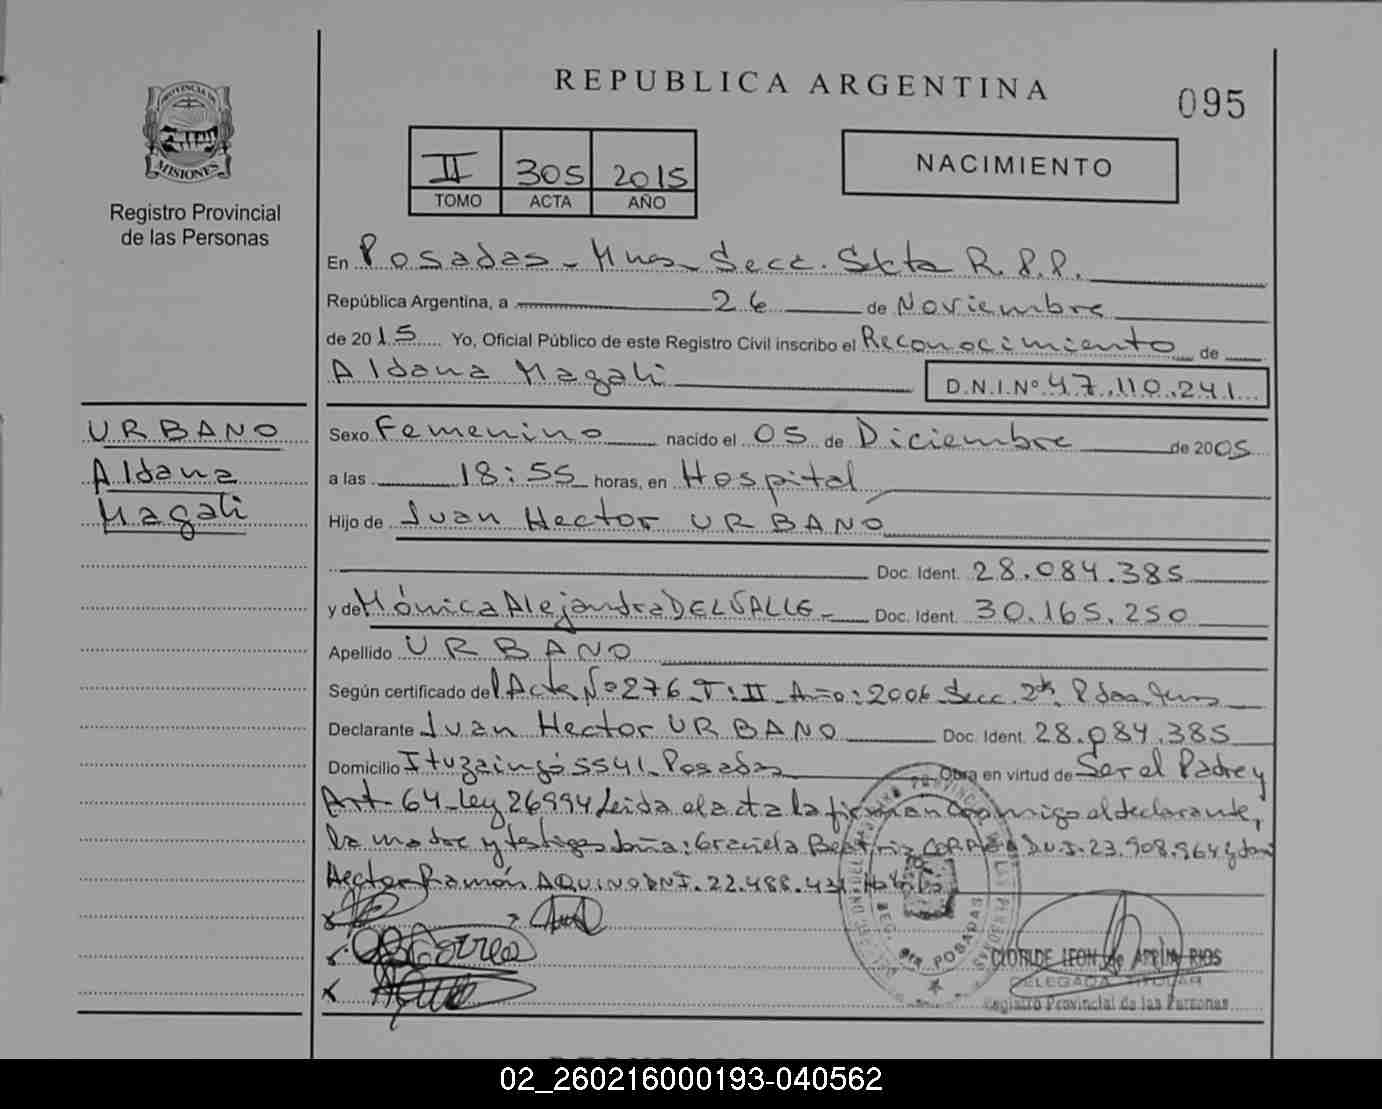 REPUBLICA ARGENTINA
095
PROVINCIA DE
MISIONES
Registro Provincial
de las Personas
II 305 2015
TOMO ACTA AÑO
NACIMIENTO
En Posadas - Mnes - Secc. Sexta R.P.P.
República Argentina, a 26 de Noviembre
de 2015 Yo, Oficial Público de este Registro Civil inscribo el Reconocimiento de
Aldana Magali D.N.I.Nº 47.110.241
URBANO
Aldana
Magali
Sexo Femenino nacido el 05 de Diciembre de 2005
a las 18:55 horas, en Hospital
Hijo de Juan Hector URBANO
Doc. Ident. 28.084.385
y de Mónica Alejandra DEL VALLE - Doc. Ident. 30.165.250
Apellido URBANO
Según certificado del Acta Nº 276 T: II Año: 2006 Secc. 2da Pdas Mnes
Declarante Juan Hector URBANO Doc. Ident. 28.084.385
Domicilio Ituzaingó 5541 - Posadas Obra en virtud de Ser el Padre y
Art 64 - Ley 26994 Leida el acta la firman conmigo el declarante,
la madre y testigos doña: Graciela Beatriz CORREA D.N.I. 23.908.964 y don
Hector Ramón AQUINO DNI. 22.488.431
Correa
SEC. 6ta POSADAS
CLOTILDE LEON de APPLIN RIOS
DELEGADA TITULAR
Registro Provincial de las Personas
02_260216000193-040562